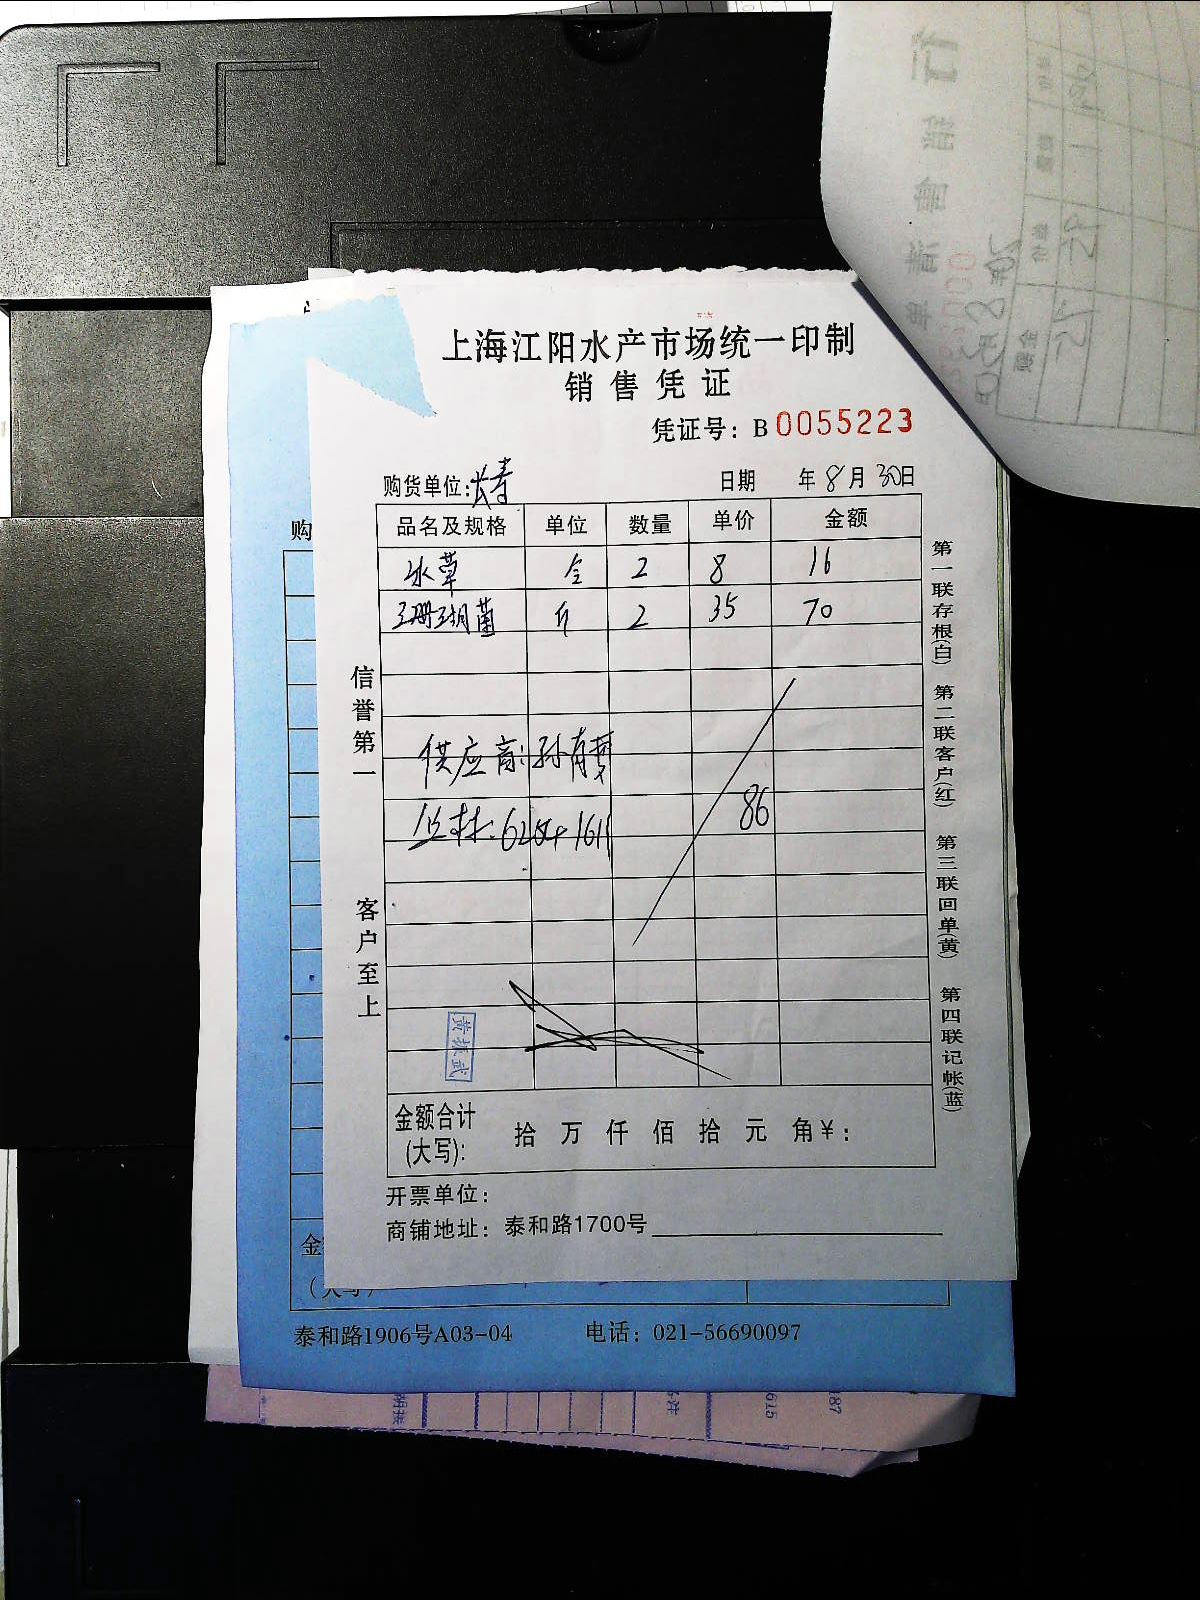 上海江阳水产市场统一印制
销售凭证
凭证号：B 0055223
购货单位：长寿 日期 年8月30日
品名及规格 单位 数量 单价 金额
冰草 仝 2 8 16
珊瑚菌 斤 2 35 70
供应商：孙有梦
86
信誉第一
客户至上
黄振武
金额合计(大写)： 拾 万 仟 佰 拾 元 角 ¥：
开票单位：
商铺地址：泰和路1700号
第一联存根(白) 第二联客户(红) 第三联回单(黄) 第四联记帐(蓝)
购
金
泰和路1906号A03-04 电话：021-56690097
615
187